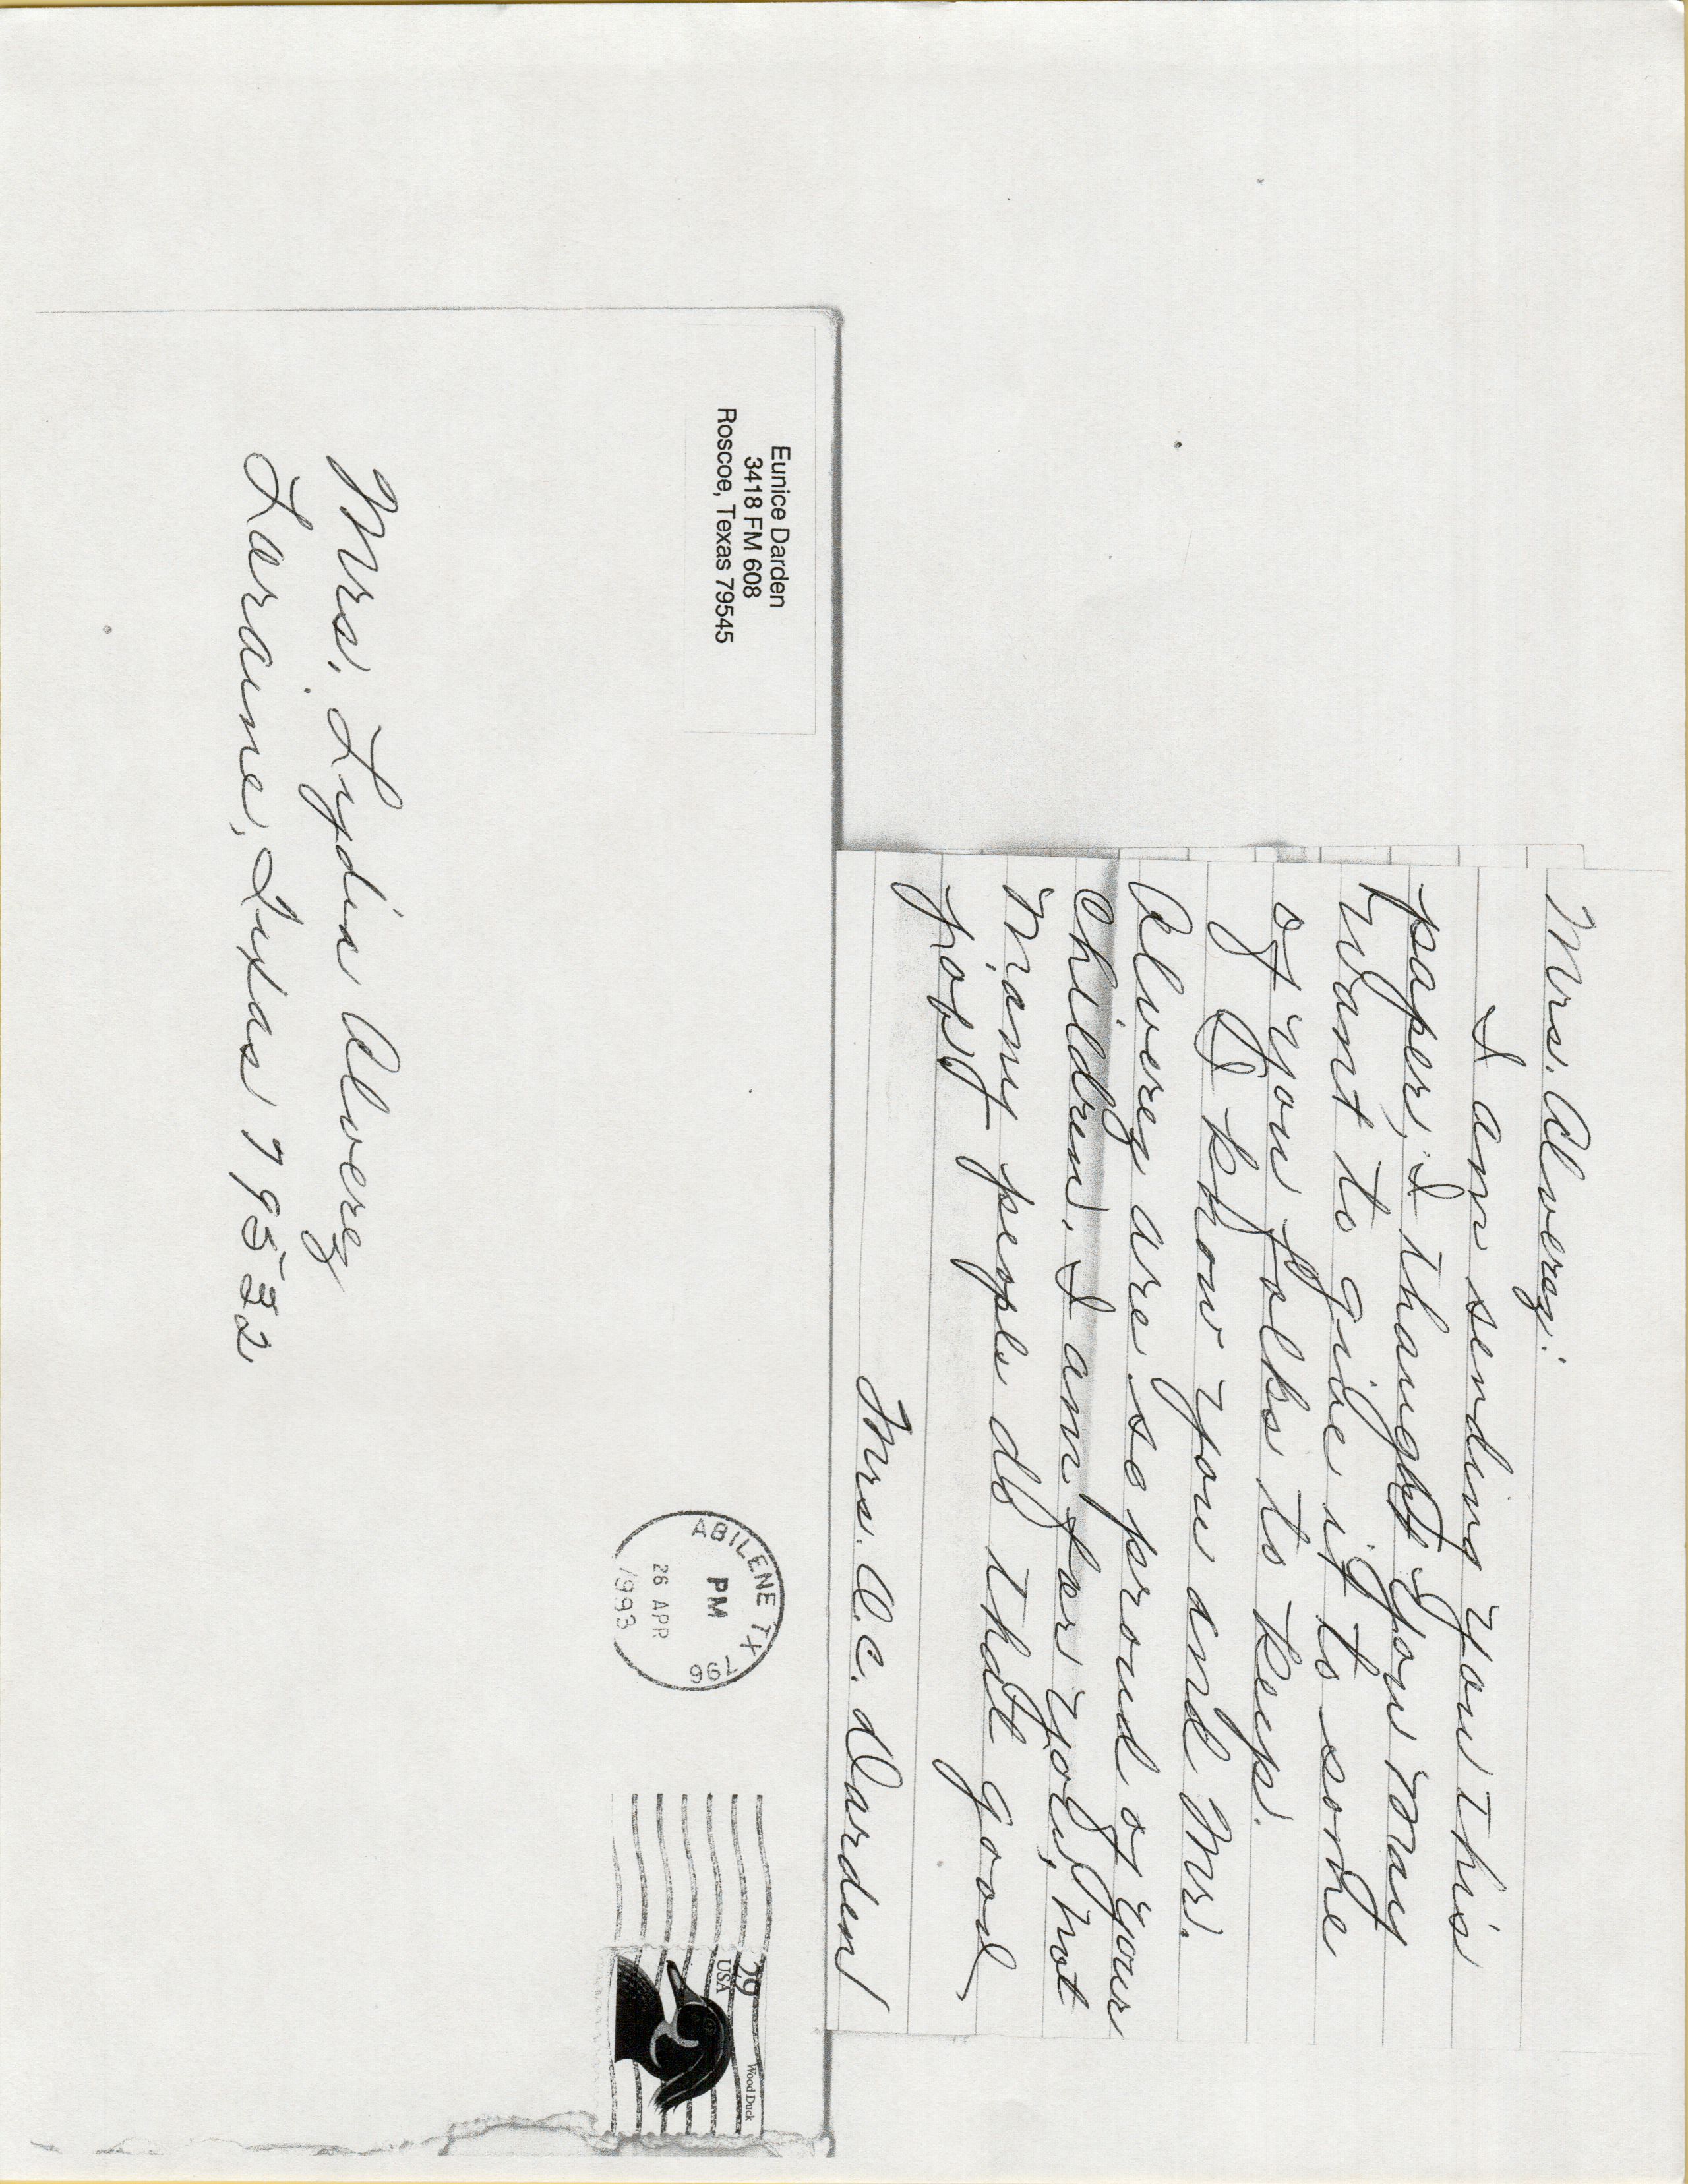 Mrs. Alverez:
I am sending you this
paper, I thought you may
want to give it to some
of you folks to keep.
I know you and Mr.
Alverez are so proud of your
children. I am for you, not
many people do that good
job.
Mrs. O.C. Darden
Eunice Darden
3418 FM 608
Roscoe, Texas 79545
ABILENE TX 796
PM
26 APR
1993
29
USA
Wood Duck
Mrs. Lydia Alverez
Loraine, Texas 79532